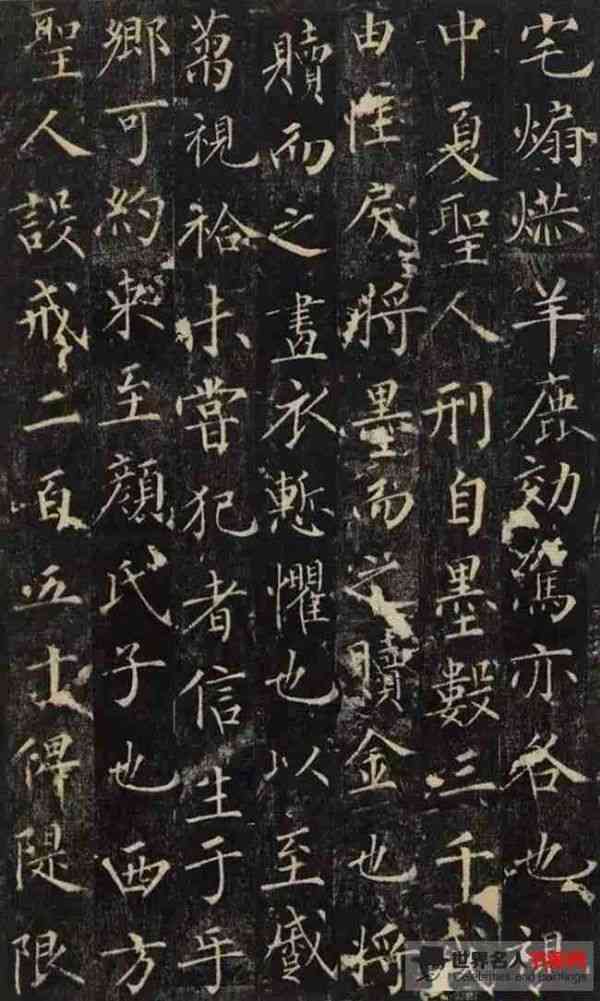 宅煽羊鹿効駕亦各也
中夏聖人刑自墨數三千
由惟戾將墨而之贖金也將
贖而之畫衣慙懼也以至
視袷未嘗犯者信生于乎
鄉可約束至顏氏子也西方
聖人設戒二百五十俾隄限
世界名人书画网
Celebrities and paintings